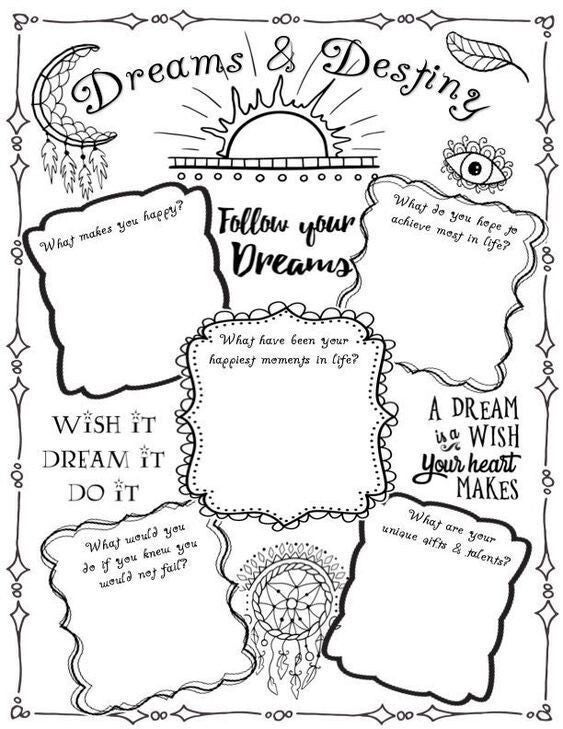 Dreams & Destiny
What makes you happy?
Follow your
Dreams
What do you hope to
achieve most in life?
What have been your
happiest moments in life?
WiSH iT
DREAM iT
DO iT
A DREAM
is a WISH
Your heart
MAKES
What would you
do if you knew you
would not fail?
What are your
unique gifts & talents?